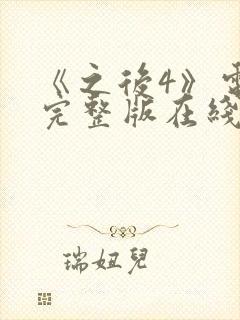 《之後4》電
完整版在綫
瑞妞兒